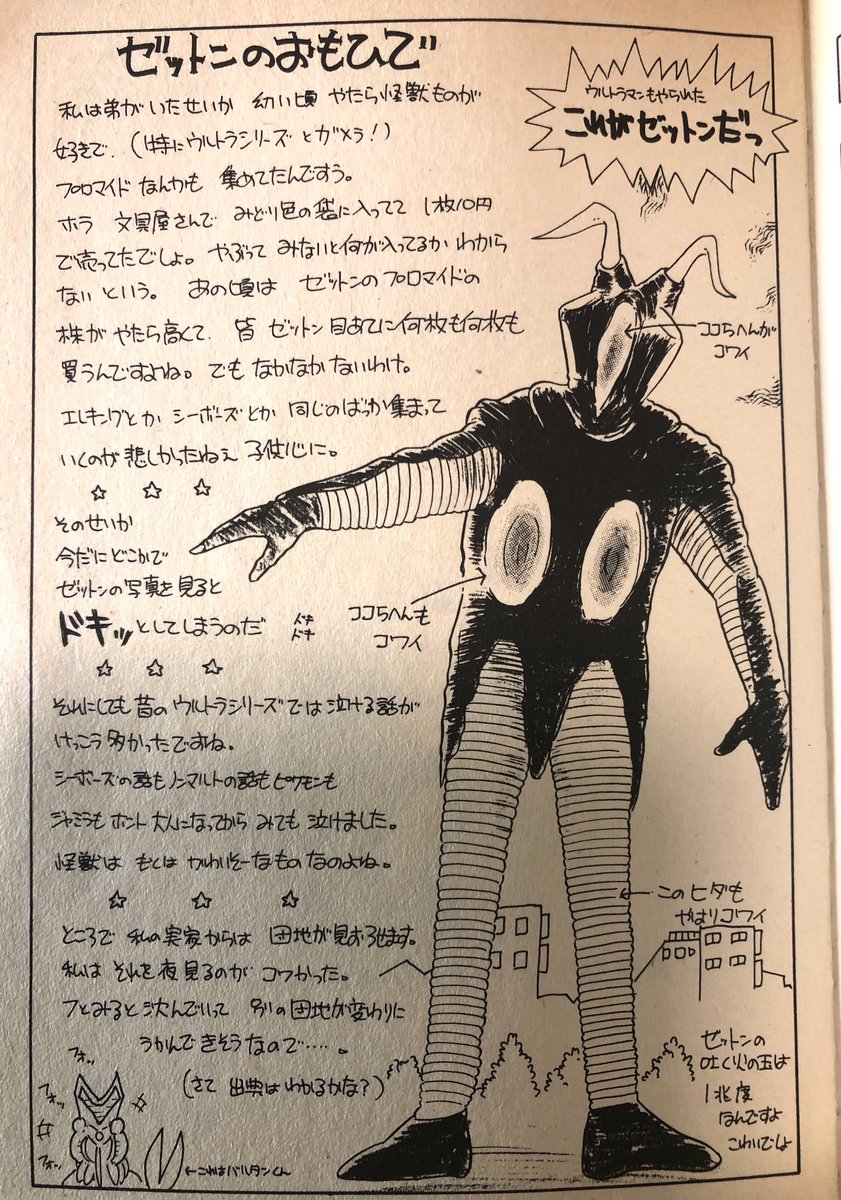 ゼットンのおもひで
ウルトラマンもやられた
これがゼットンだっ
私は弟がいたせいか 幼い頃 やたら怪獣ものが
好きで、(特にウルトラシリーズとガメラ!)
ブロマイドなんかも 集めてたんですう。
ホラ 文具屋さんで みどり色の袋に入ってて 1枚10円
で売ってたでしょ。やぶって みないと何が入ってるか わから
ないという。 あの頃は ゼットンのブロマイドの
株が やたら高くて、 皆 ゼットン目あてに何枚も何枚も
買うんですよね。でも なかなか ないわけ。
エレキングとか シーボーズとか 同じのばっか集まって
いくのが 悲しかったねえ 子供心に。
☆ ☆ ☆
そのせいか
今だにどこかで
ゼットンの写真を見ると
ドキッとしてしまうのだ ドキ
ドキ
ココらへんが
コワイ
ココらへんも
コワイ
☆ ☆ ☆
それにしても 昔の ウルトラシリーズでは 泣ける話が
けっこう多かったですね。
シーボーズの話もノンマルトの話もピグモンも
ジャミラも ホント 大人になってから みても 泣けました。
怪獣は もとは かわいそーなもの なのよね。
☆ ☆ ☆
このヒダも
やはりコワイ
ところで 私の実家からは 団地が見おろせます。
私は それを夜見るのが コワかった。
フとみると 沈んでいって 別の団地が変わりに
うかんで きそうなので……。
(さて 出典はわかるかな?)
フォッ
フォッ
フォッ
←これはバルタンくん
ゼットンの
吐く火の玉は
1兆度
なんですよ
こわいでしょ